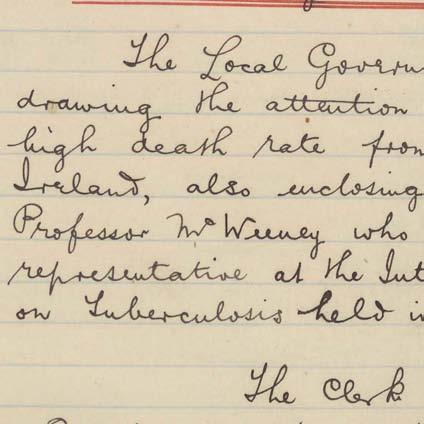 The Local Govern
drawing the attention
high death rate from
Ireland, also enclosing
Professor McWeeney who
representative at the Int
on Tuberculosis held in
The Clerk